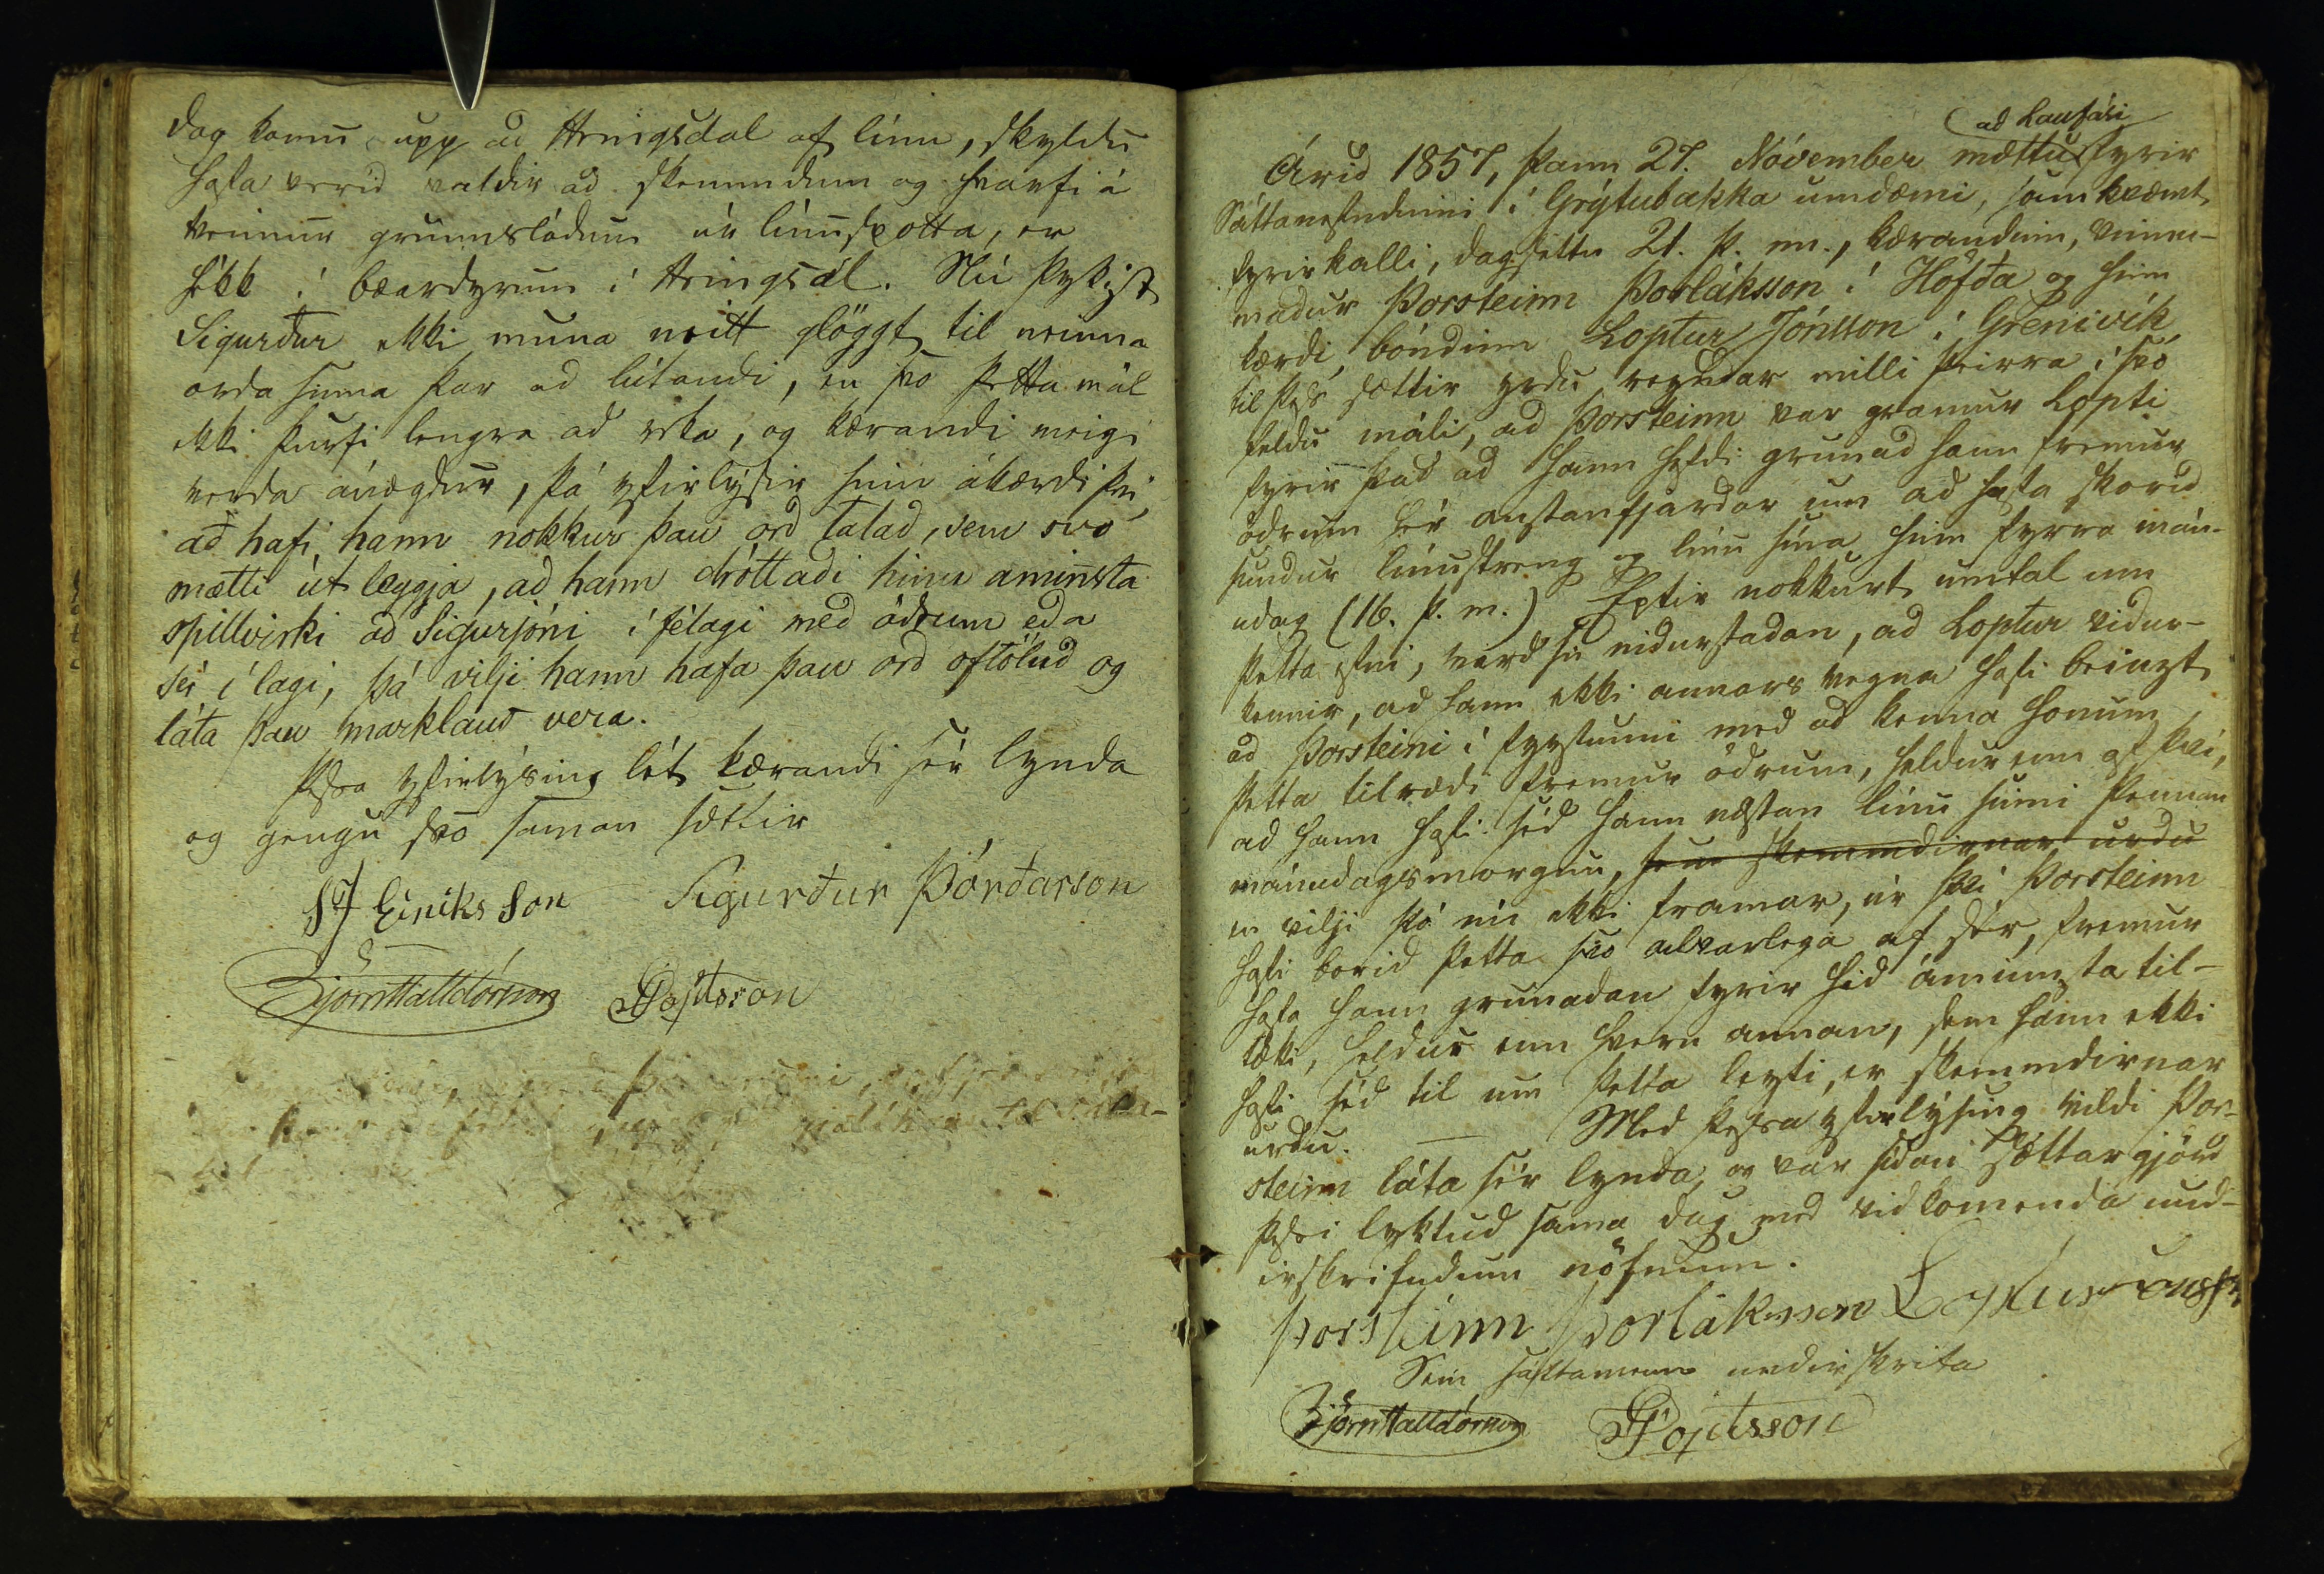 dag komu upp að Hringsdal af línu, skyldu
hafa verid valdir ad skemmdum og hvarfi á
tveimur grunnslódum úr línuspotta, er
hékk í bæardyrum í Hringsdal. Nú þykist
Sigurður ekki muna neitt glöggt til neinna
orda sinna þar ad lútandi, en svo þetta mál
ekki þurfi lengra ad reka, og kærandi meigi
verda ánægdur, þá yfirlýsir hinn ákærdi því,
að hafi, hann nokkur þau ord talad, sem svo
mætti út leggja, ad hann dróttadi hinu aminsta
spillvirki ad Sigurjóni í félagi med ödrum eda
sér í lagi, þá vilji hann hafa þau ord oftöluð og
láta þau marklaus vera.
Þessa yfirlýsing lét kærandi sér lynda
og gengu svo saman sættir
SJ Eiriksson Sigurður Þórðarson
Björn Halldórsson
ad Laufási
Árid 1857, þann 27. Nóvember mættu fyrir
Sáttanefndinni í Grýtubakka umdæmi, samkvæmt
fyrirkalli, dagsettu 21. þ. m., kærandinn, vinnu-
madur Þorsteinn Þorláksson í Höfða og hinn
kærdi, bóndinn Loptur Jónsson í Grenivík
til þess sættir yrdu reyndar milli þeirra í svo
feldu máli, ad Þorsteinn var gramur Lopti
fyrir það ad hann hefdi grunad hann fremur
ödrum hér austanfjardar um ad hafa skorid
sundur línustreng og línu sína hinn fyrra mán-
udag (16. þ. m.) Eptir nokkurt umtal um
þetta efni, vard sú nidurstadan, ad Loptur vidur-
kennir, ad hann ekki annars vegna hafi beinzt
ad Þorsteini í fyrstunni med ad kenna honum
þetta tilrædi fremur ödrum, heldur enn af því,
ad hann hafi séd hann næstan línu sinni þennan
mánudagsmorgun, sem skemmdirnar urdu
en vilji þó nú ekki framar, úr því Þorsteinn
hafi borid þetta svo alvarlega af sér, fremur
hafa hann grunadan fyrir hid áminnzta til-
tæki, heldur enn hvern annan, sem hann ekki
hafi séd til um þetta leyti, er skemmdirnar
urdu. — Med þessa yfirlýsing vildi Þor-
steinn láta sér lynda, og var sídan sættargjörd
þessi lyktud sama dag med vidkomenda und-
irskrifudum nöfnum.
Þorsteinn Þorláksson Loptur Jónsson
Sem sáttamenn undirskrifa
Björn Halldórsson